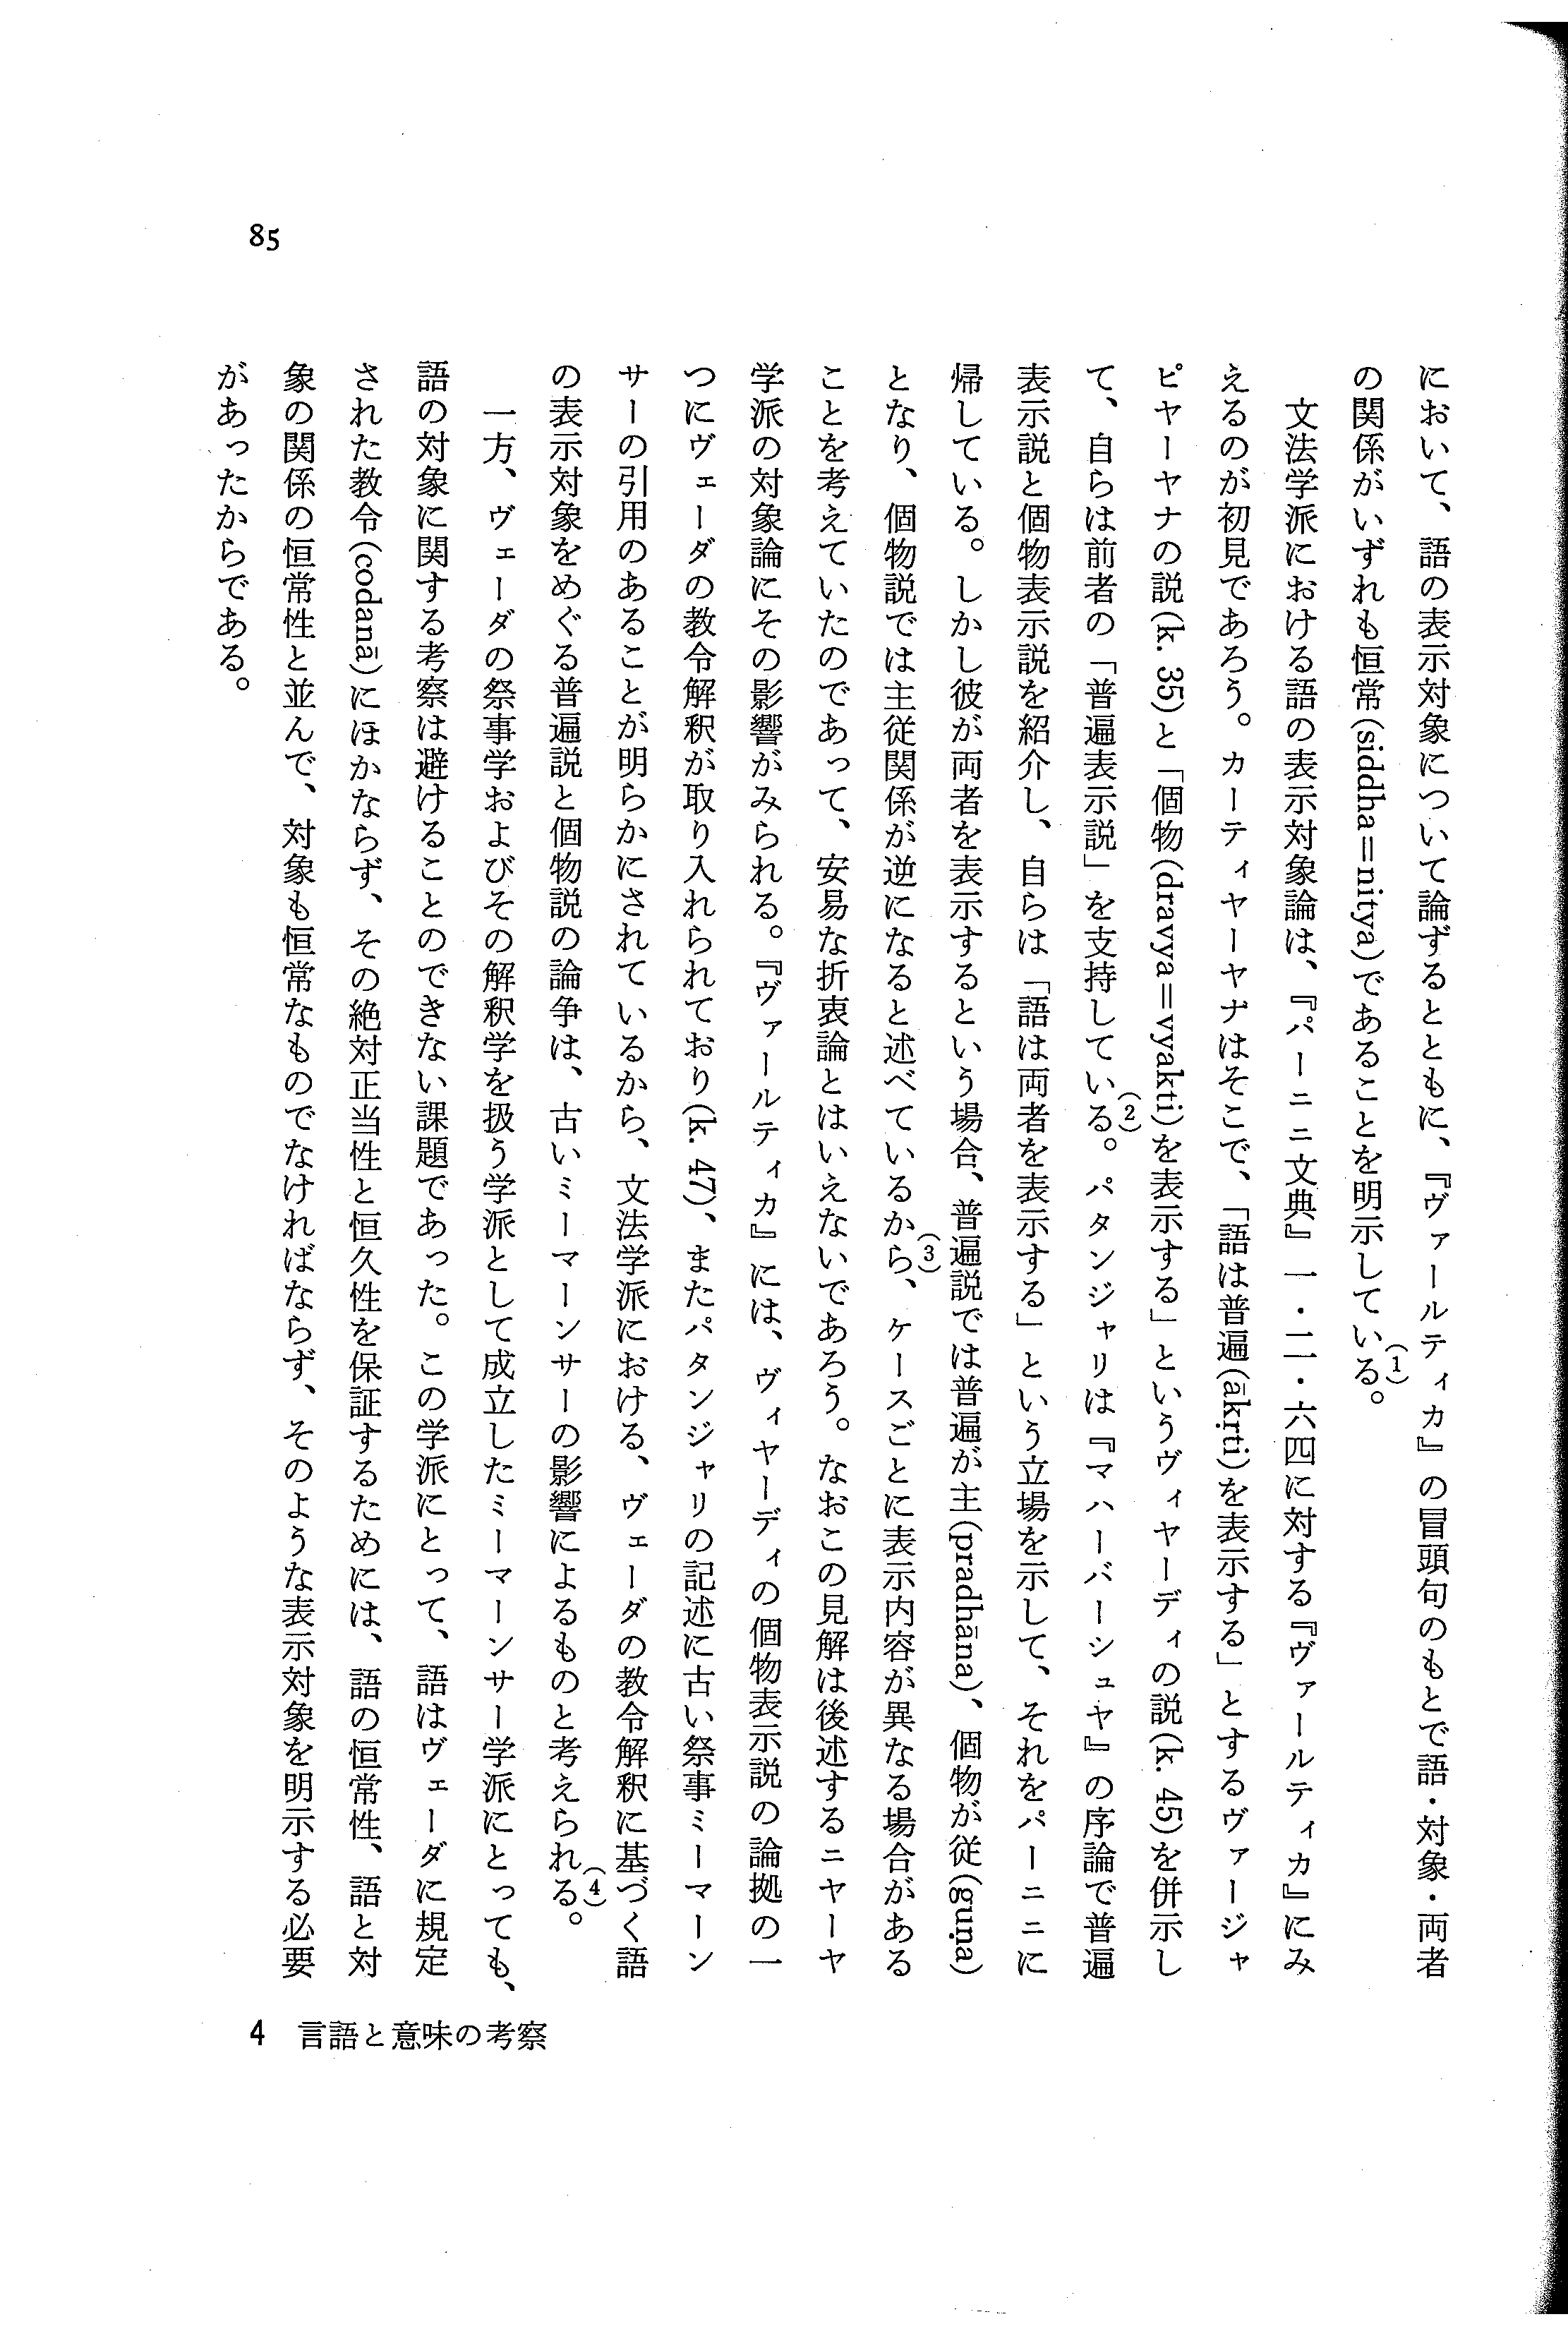 において、語の表示対象について論ずるとともに、『ヴァールティカ』の冒頭句のもとで語・対象・両者
の関係がいずれも恒常(siddha=nitya)であることを明示している(1)。
　文法学派における語の表示対象論は、『パーニニ文典』一・二・六四に対する『ヴァールティカ』にみ
えるのが初見であろう。カーティヤーヤナはそこで、「語は普遍(ākṛti)を表示する」とするヴァージャ
ピヤーヤナの説(k. 35)と「個物(dravya=vyakti)を表示する」というヴィヤーディの説(k. 45)を併示し
て、自らは前者の「普遍表示説」を支持している(2)。パタンジャリは『マハーバーシュヤ』の序論で普遍
表示説と個物表示説を紹介し、自らは「語は両者を表示する」という立場を示して、それをパーニニに
帰している。しかし彼が両者を表示するという場合、普遍説では普遍が主(pradhāna)、個物が従(guṇa)
となり、個物説では主従関係が逆になると述べているから(3)、ケースごとに表示内容が異なる場合がある
ことを考えていたのであって、安易な折衷論とはいえないであろう。なおこの見解は後述するニヤーヤ
学派の対象論にその影響がみられる。『ヴァールティカ』には、ヴィヤーディの個物表示説の論拠の一
つにヴェーダの教令解釈が取り入れられており(k. 47)、またパタンジャリの記述に古い祭事ミーマーン
サーの引用のあることが明らかにされているから、文法学派における、ヴェーダの教令解釈に基づく語
の表示対象をめぐる普遍説と個物説の論争は、古いミーマーンサーの影響によるものと考えられる(4)。
　一方、ヴェーダの祭事学およびその解釈学を扱う学派として成立したミーマーンサー学派にとっても、
語の対象に関する考察は避けることのできない課題であった。この学派にとって、語はヴェーダに規定
された教令(codanā)にほかならず、その絶対正当性と恒久性を保証するためには、語の恒常性、語と対
象の関係の恒常性と並んで、対象も恒常なものでなければならず、そのような表示対象を明示する必要
があったからである。
85
4　言語と意味の考察